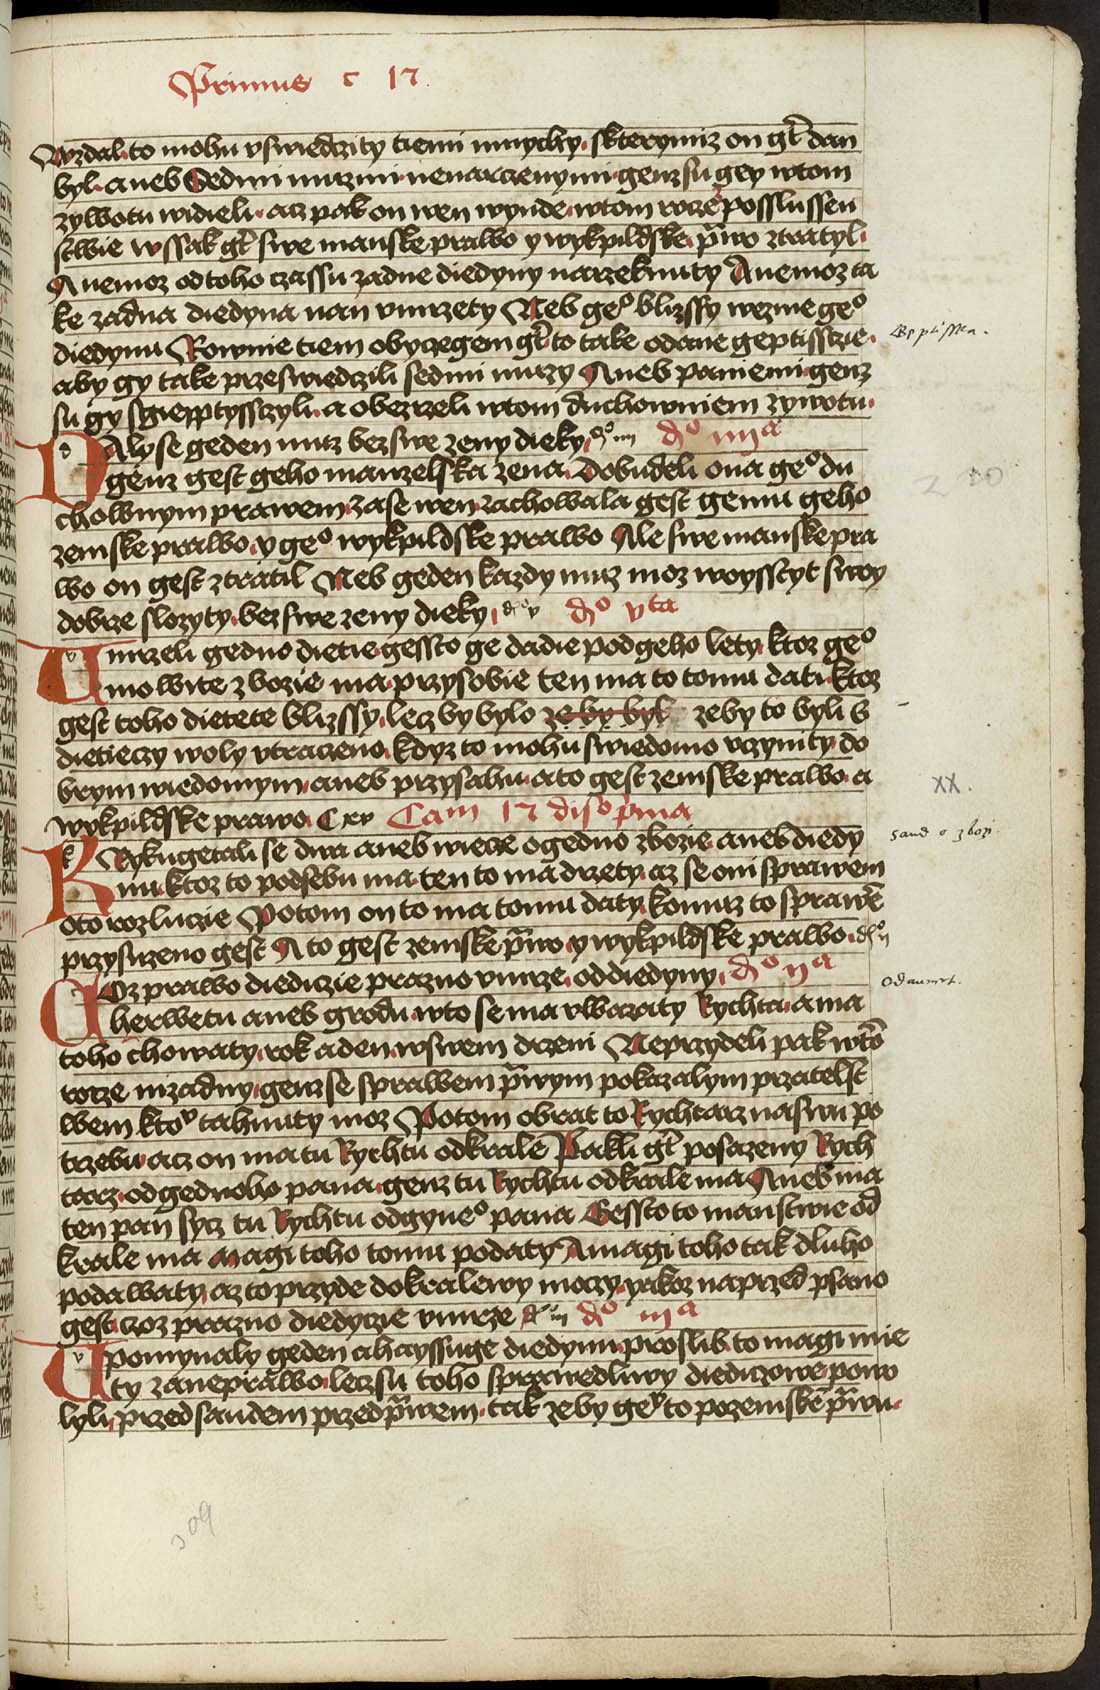 Primus c 17
wzdal to mohu vswiedczity tiemi mnychy skterymiz on gt dan
byl aneb Sedmi muzmi nenarczenymi genz su gey wtom
zywotu widieli acz pak on wen wynde wtom rocze posslussen
stwie wssak gt swe manske prawo y wykpildske pwo ztratyl
A nemoz od toho czassu zadne diedyny narzeknuty A nemoz ta
ke zadna diedyna nan vmrzety Neb geo blizssy wezme geo
diedynu Rownie tiem obyczegem gt to take o dane geptisscze
aby gy take przeswiedczili sedmi muzy Aneb paniemi genz
su gy sgiepptyssczyli a obezrzeli wtom duchowniem zywotu
Dalyse geden muz bez swe zeny dieky do iiii do iiiia
genz gest geho manzelska zena Dobudeli ona geo du
chownym prawem zase wen zachowala gest gemu geho
zemske prawo y geo wykpildske prawo Ale swe manske pra
wo on gest ztratil Neb geden kazdy muz moz woysstyt swoy
dobrze slozyty bez swe zeny dieky do v do vta
Umrzeli gedno dietie gessto ge dadie pod geho lety ktoz geo
mowite zbozie ma przysobie ten ma to tomu dati ktoz
gest toho dietete blizssy lecz by bylo ze by byl zeby to byli s
dietieczy woly vtraczeno kdyz to mohu swiedomo vczynity do
brym wiedomym aneb przysahu a to gest zemske prawo a
wykpildske prawo C xv Cam 17 diso prima
Kdykugetali se dwa aneb wiece o gedno zbozie aneb diedy
nu ktoz to podsebu ma ten to ma drzety az se oni sprawem
oto rozlucie Potom on to ma tomu daty komuz to sprawe
przysuzeno gest A to gest zemske pwo y wykpildske prawo do ii
Coz prawo diediczie prazno vmrze od diedyny do iia
herwetu aneb grodu wto se ma vwazaty Rychtarz a ma
toho chowaty rok a den wswem drzeni Neprzydeli pak wto
rocze nizadny genz se sprawem pwym pokazalym przatelst
wem kto tahnuty moz Potom obrat to Rychtarz na swu po
trzebu acz on ma tu Rychtu od krale Pakli gt posazeny Rych
tarz od gednoho pana genz tu Rychtu od krale ma Aneb ma
ten pan syez tu Rychtu od gyneo pana Gessto to manstwie od
krale ma Magi toho tomu podaty A magi toho tak dluho
podawaty az to przyde do kralewy moczy yakoz naprzed psano
gest coz prazno diedycie vmrze do iii do iiia
Upomynaly geden a hayssuge diedynu proslib to magi mie
ty za neprawo lecz su toho sprawedliwy diediczowe powo
lyli przed saudem przed pwem tak zeby gey to pozemske pwu
Geptissta.
xx.
saud o zbozi.
odaumrt.
309